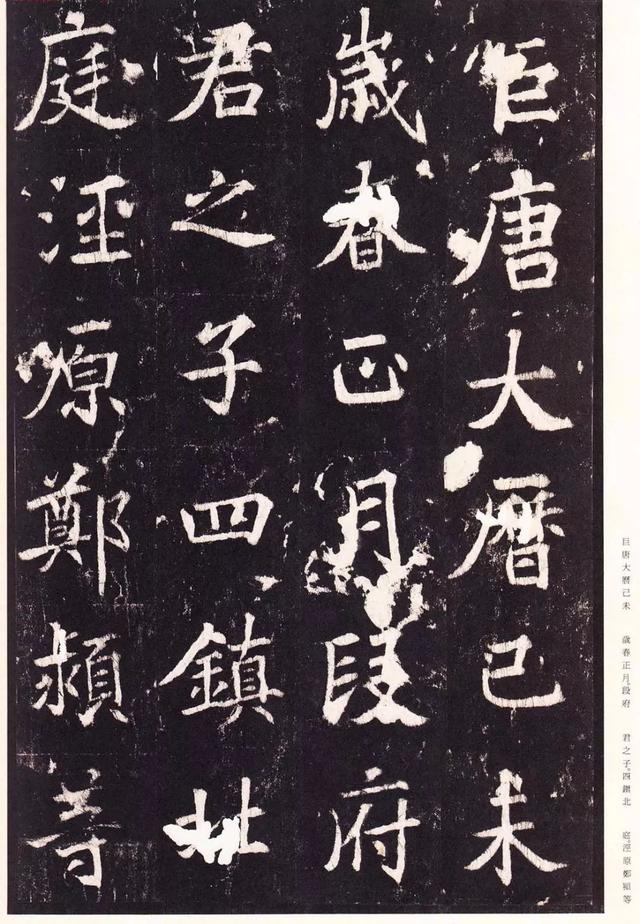 巨唐大曆己未
歲春正月段府
君之子四鎮北
庭涇原鄭潁等
巨唐大曆己未　歲春正月。段府　君之子。四鎮北　庭。涇原鄭穎等